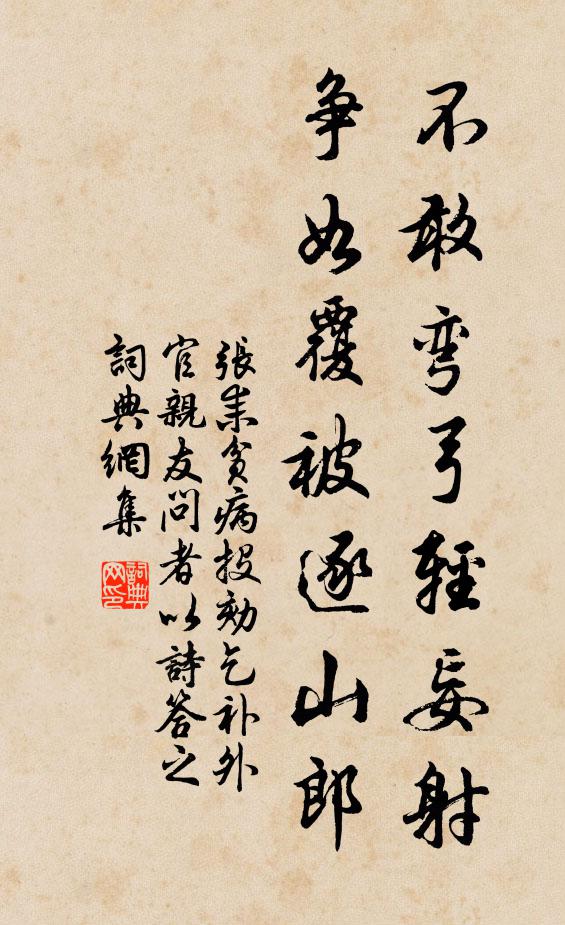 不敢弯弓輕妄射
争如覆被逐山郎
張耒貧病投劾乞补外
官親友問者以詩答之
詞典網集
詞典网印